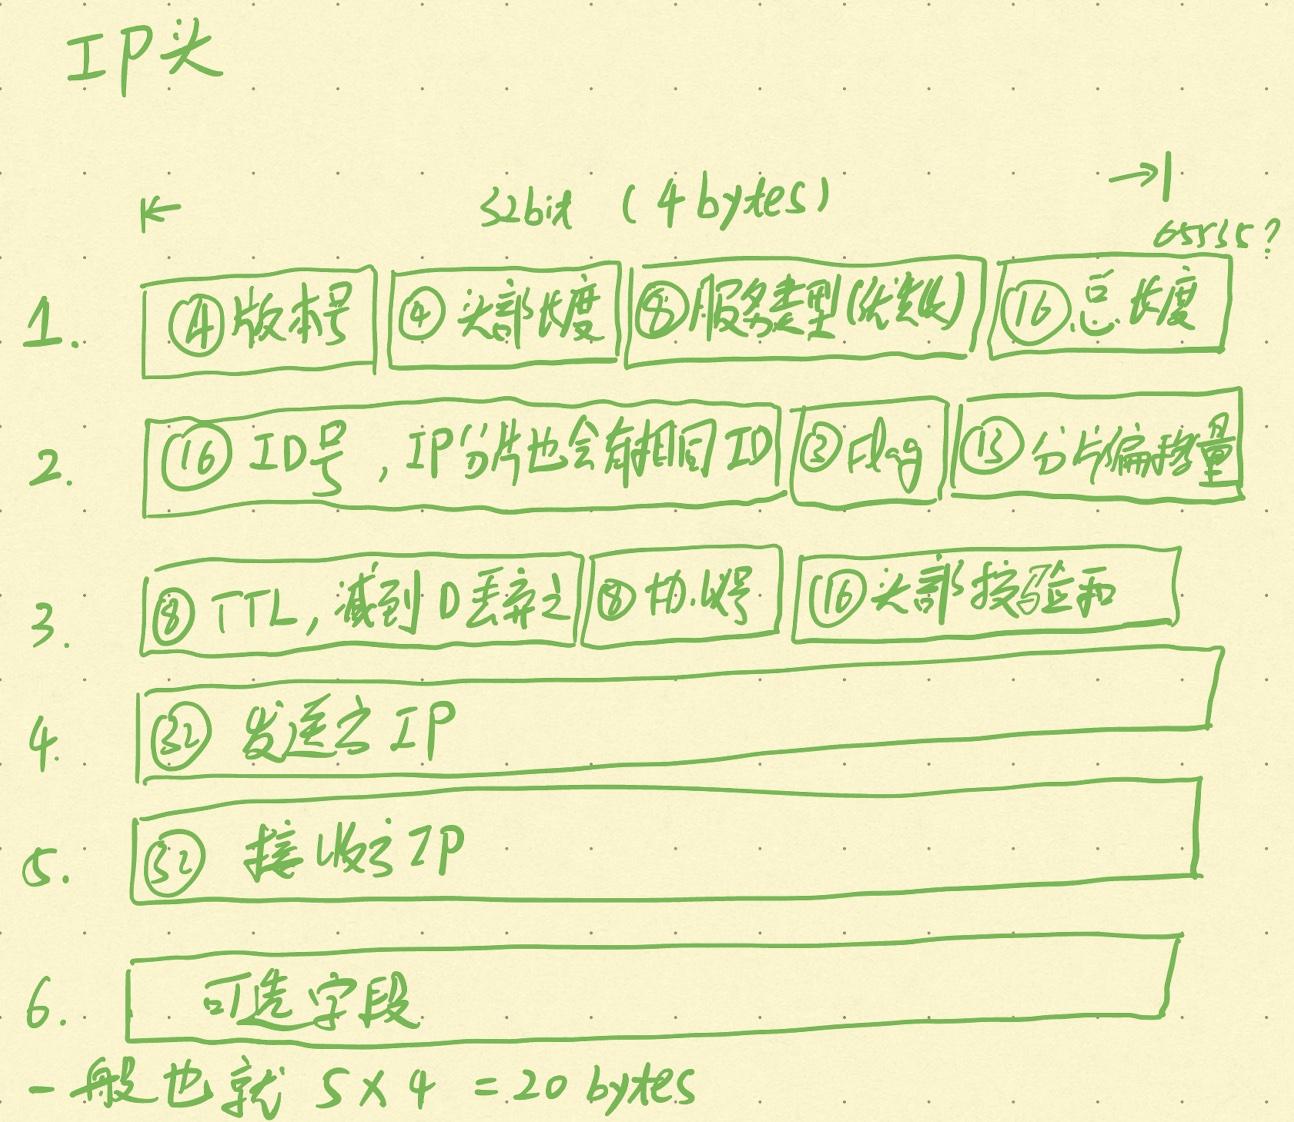 IP头
32bit (4 bytes)
65535?
1. ④版本号 ④头部长度 ⑧服务类型(优先级) ⑯总长度
2. ⑯ID号,IP分片也会有相同ID ③Flag ⑬分片偏移量
3. ⑧TTL,减到0丢弃之 ⑧协议号 ⑯头部校验和
4. ㉜发送方IP
5. ㉜接收方IP
6. 可选字段
一般也就 5×4 =20 bytes